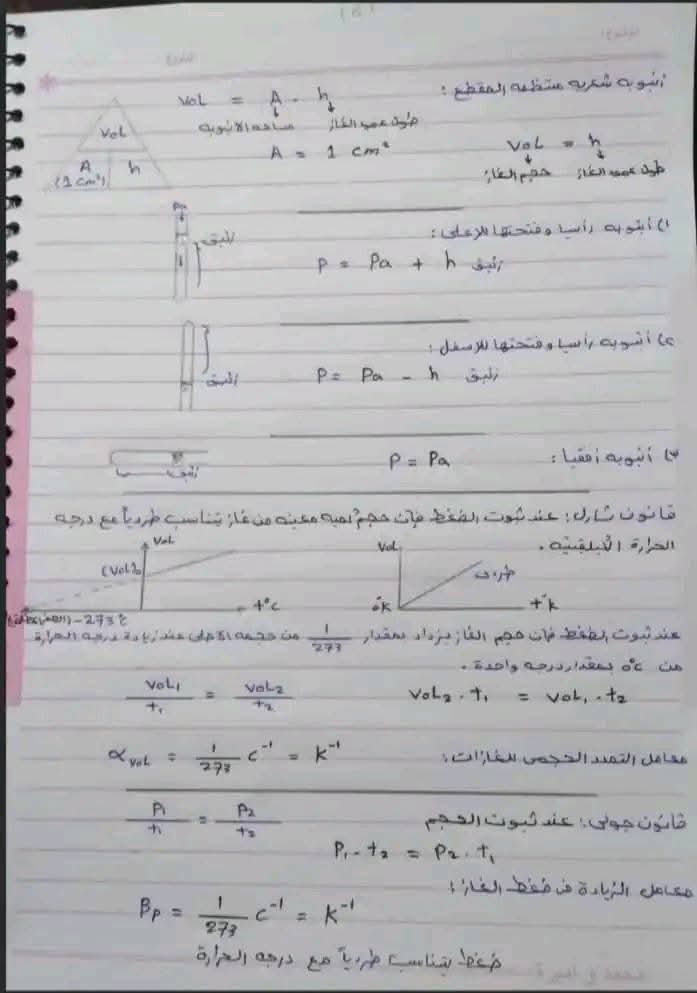 (6)
أنبوبه شعريه منتظمه المقطع :
VoL = A . h
مساحه الانبوبه طول عمود الغاز
A = 1 cm²
VoL = h
حجم الغاز طول عمود الغاز
VoL
A
(1 cm²)
h
١) أنبوبه رأسيا وفتحتها للأعلى :
Pa
زئبق
P = Pa + h زئبق
٢) أنبوبه رأسيا وفتحتها للاسفل :
زئبق
P = Pa - h زئبق
٣) أنبوبه أفقيا :
زئبق
P = Pa
قانون شارل : عند ثبوت الضغط فإن حجم كمية معينه من غاز يتناسب طردياً مع درجه
الحرارة الكيلفنيه .
VoL
(VoL)₀
t°C
-273°C
VoL
طردى
0°K
t°K
عند ثبوت الضغط فإن حجم الغاز يزداد بمقدار 1/273 من حجمه الاصلى عند زيادة درجه الحرارة
من 0°c بمقدار درجه واحدة .
VoL₁/t₁ = VoL₂/t₂
VoL₂ . t₁ = VoL₁ . t₂
معامل التمدد الحجمى للغازات :
α VoL = 1/273 c⁻¹ = K⁻¹
قانون جولى : عند ثبوت الحجم
P₁/t₁ = P₂/t₂
P₁ . t₂ = P₂ . t₁
معامل الزيادة فى ضغط الغاز :
βp = 1/273 c⁻¹ = K⁻¹
ضغط يتناسب طردياً مع درجه الحرارة